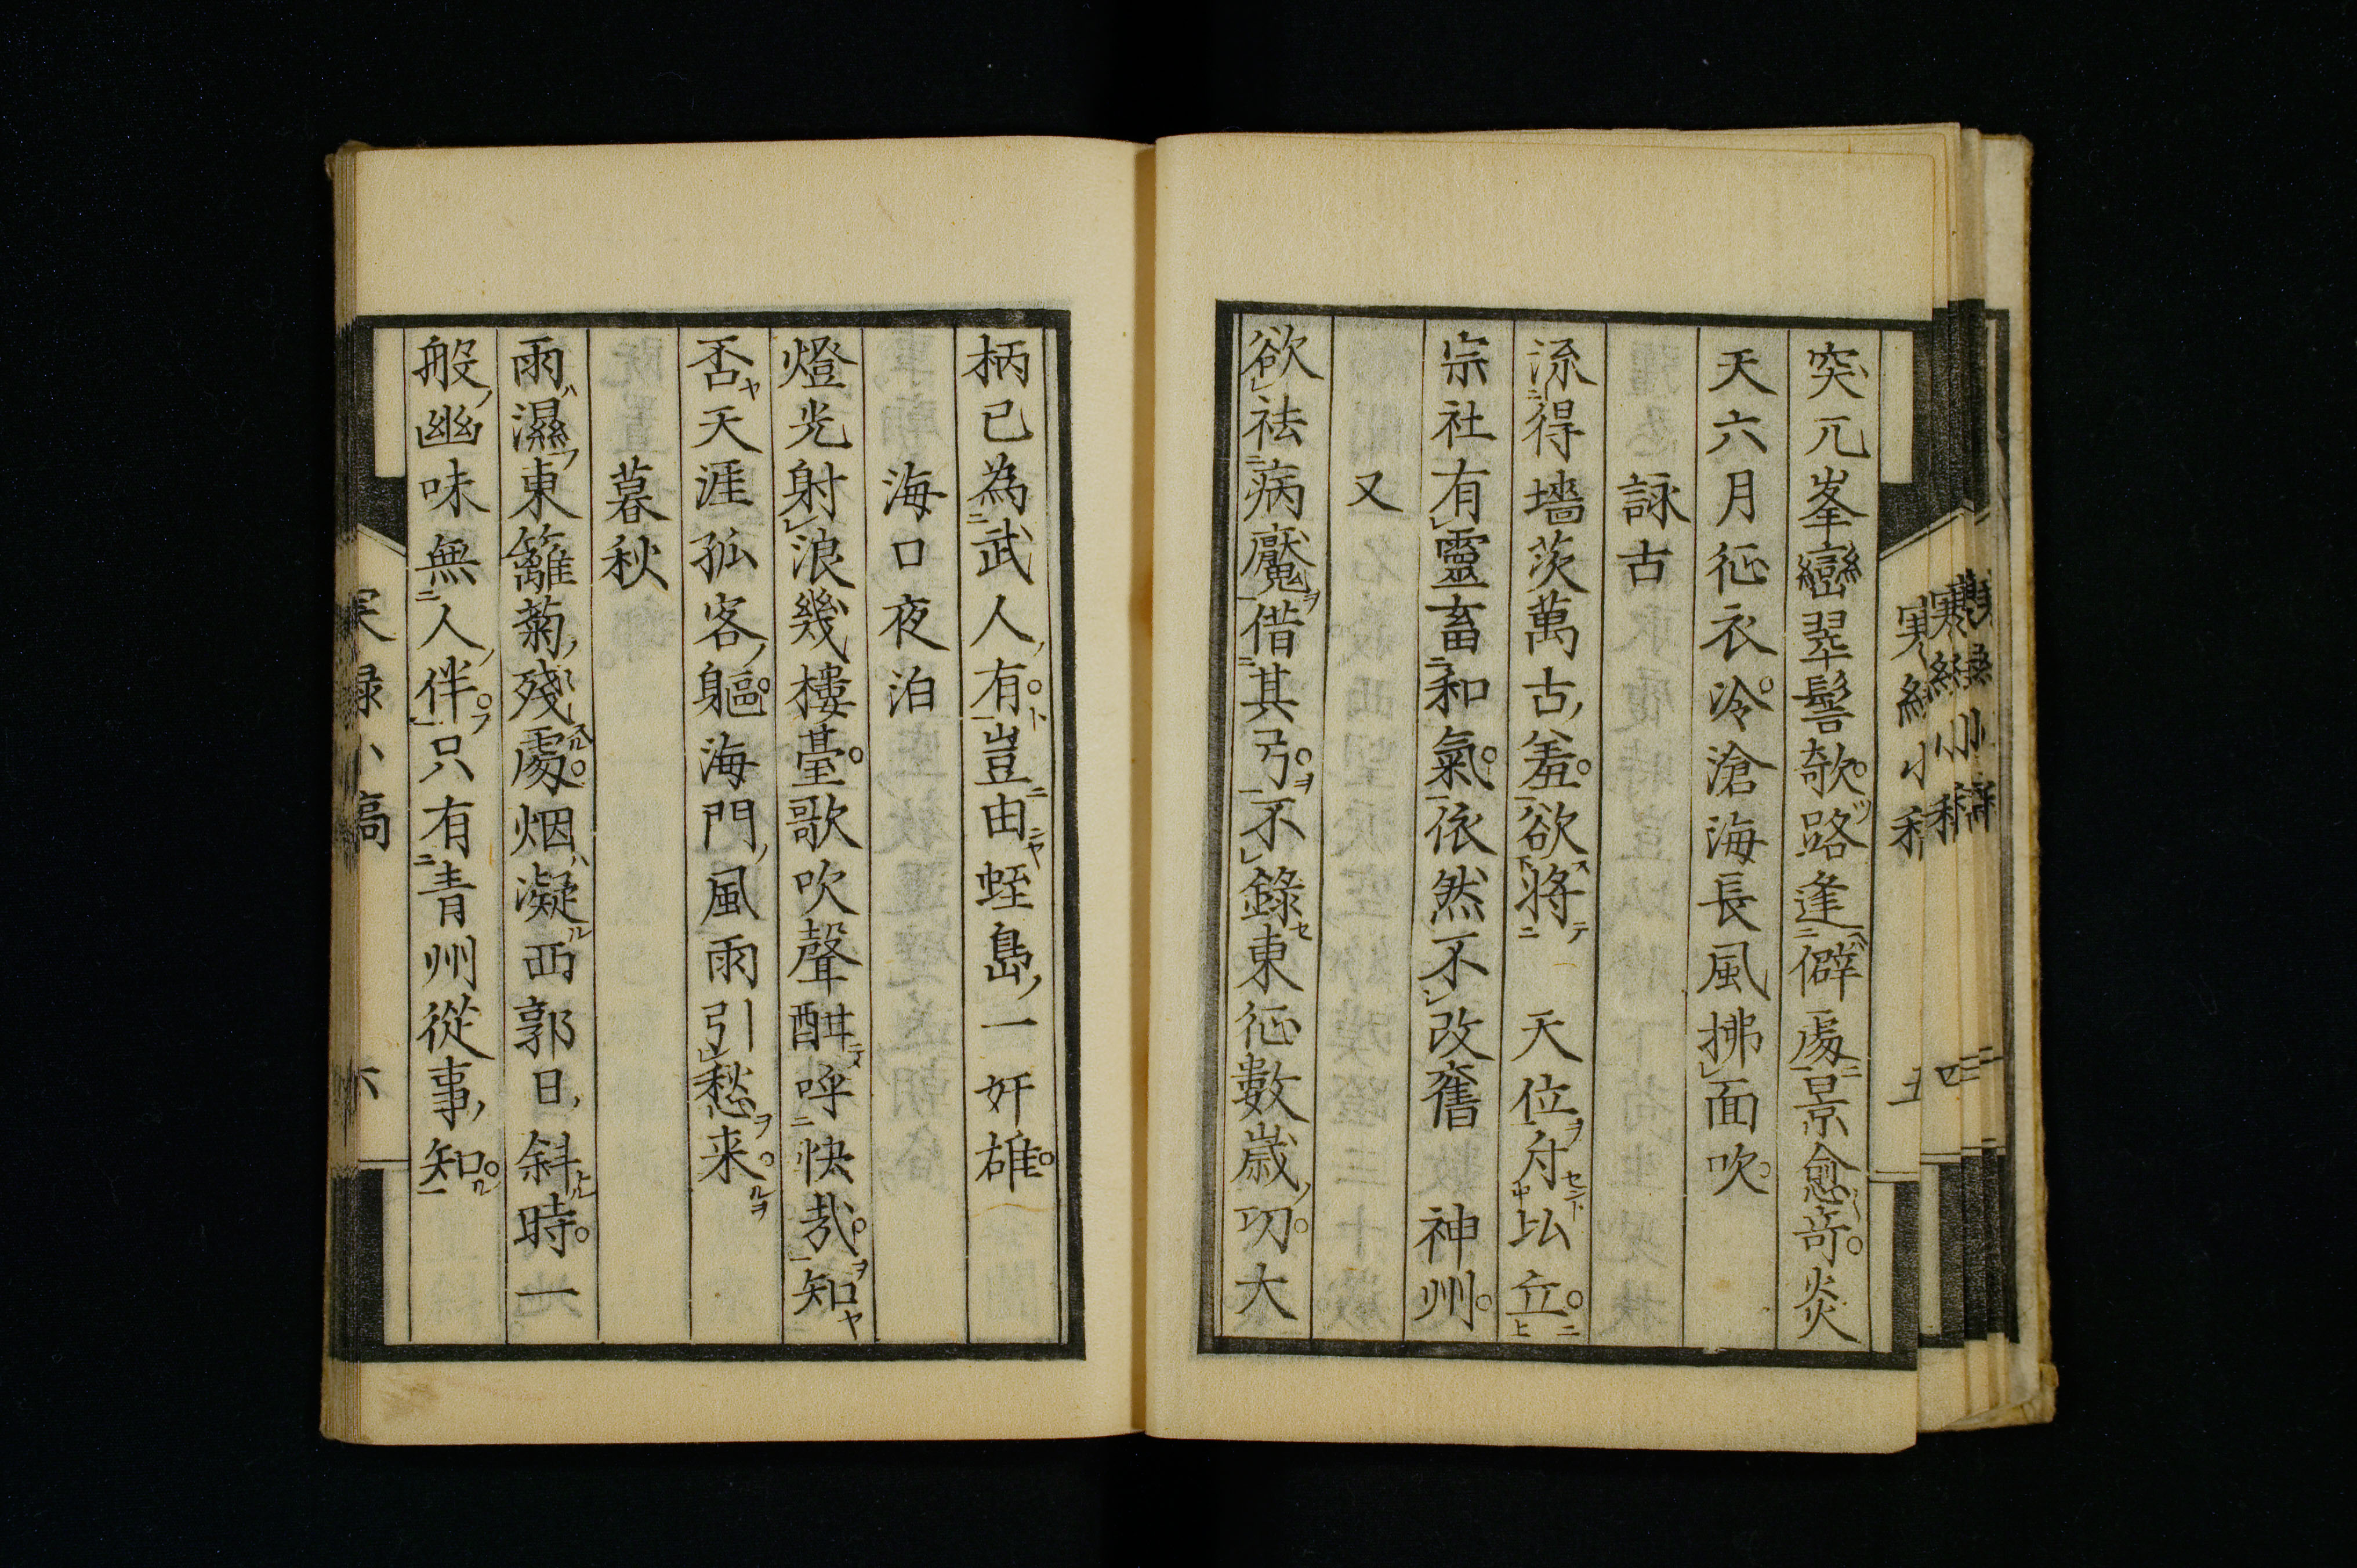 突兀峯巒翠髻欹路逢僻處景愈奇炎
天六月征衣冷滄海長風拂面吹
詠古
流得墻茨萬古羞欲將 天位付坛立
宗社有靈畜和氣依然不改舊 神州
又
欲祛病魔借其弓不錄東征數歲功大
柄已為武人有豈由蛭島一奸雄
海口夜泊
燈光射浪幾樓臺歌吹聲酣呼快哉知
否天涯孤客軀海門風雨引愁来
暮秋
雨濕東籬菊殘處烟凝西郭日斜時一
般幽味無人伴只有青州從事知